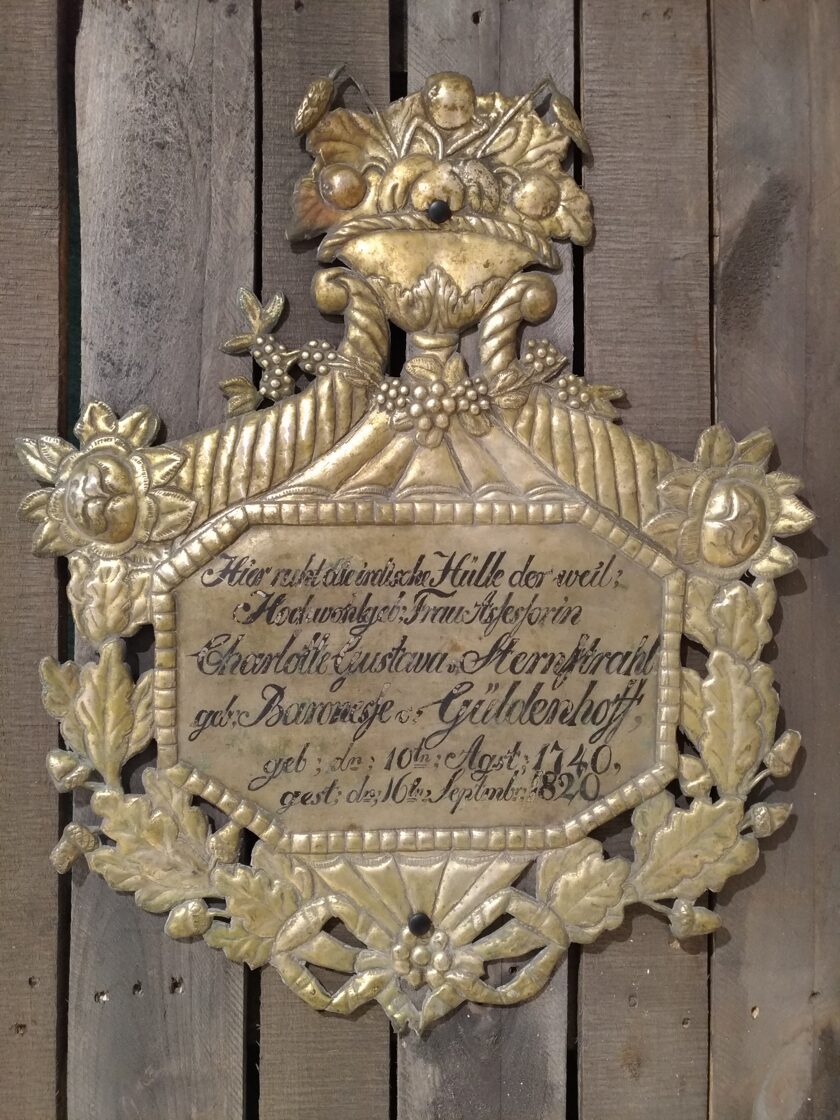 Hier ruht die irdische Hülle der weil:
Hochwohlgeb: Frau Assessorin
Charlotte Gustava v. Sternstrahl
geb: Baronesse v: Güldenhoff,
geb: dn: 10tn: Agst: 1740,
gest: dn: 16tn: Septmbr: 1820